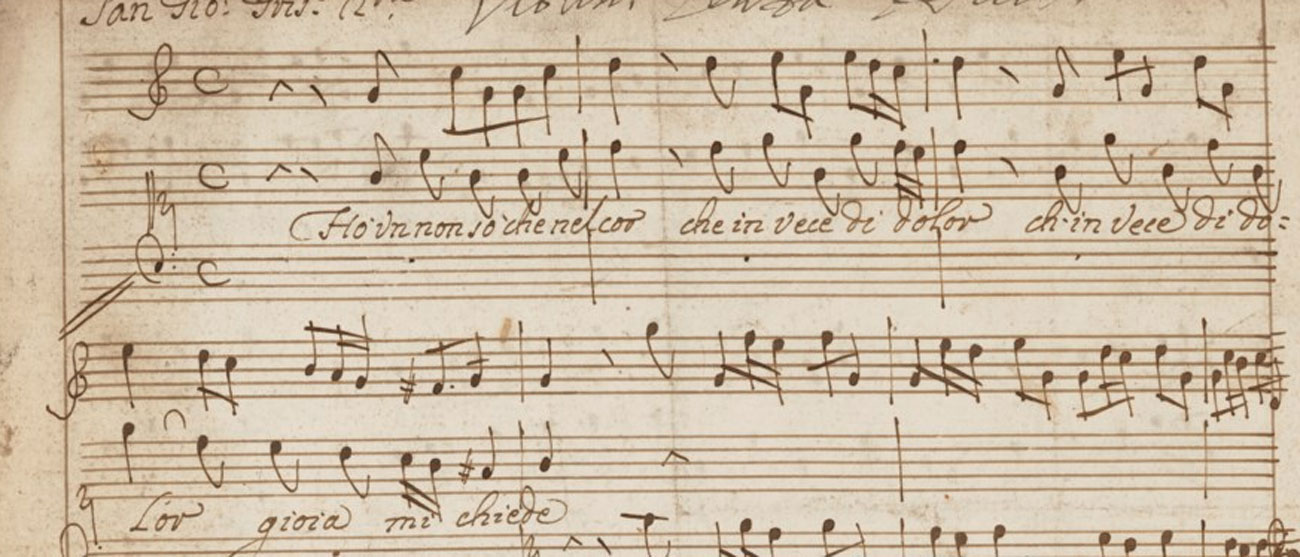 San Gio: Gris:
Violini Senza
Ho un non sò che nel cor che in vece di dolor ch'in vece di do=
lor gioia mi chiede